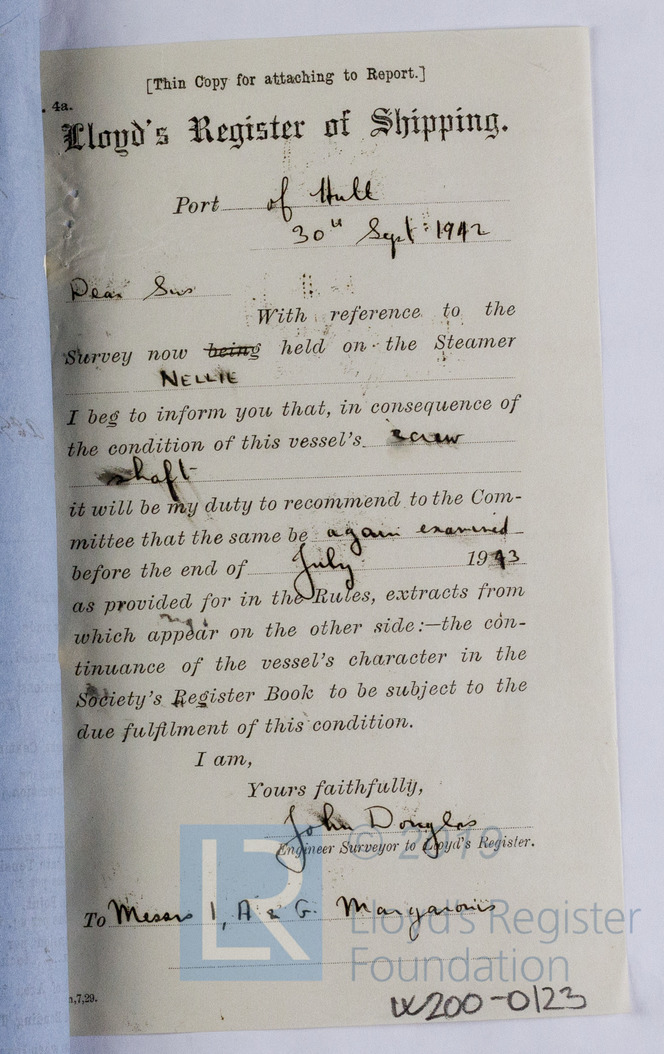 [Thin Copy for attaching to Report.]
. 4a.
Lloyd's Register of Shipping.
Port of Hull
30th Sept: 1942
Dear Sirs
With reference to the
Survey now being held on the Steamer
NELLIE
I beg to inform you that, in consequence of
the condition of this vessel's screw
shaft
it will be my duty to recommend to the Com-
mittee that the same be again examined
before the end of July 1943
as provided for in the Rules, extracts from
which appear on the other side:—the con-
tinuance of the vessel's character in the
Society's Register Book to be subject to the
due fulfilment of this condition.
I am,
Yours faithfully,
John Douglas
Engineer Surveyor to Lloyd's Register.
© 2019
To Messrs I, A & G. Margaronis
LR
Lloyd's Register
Foundation
,7,29.
W200-0123